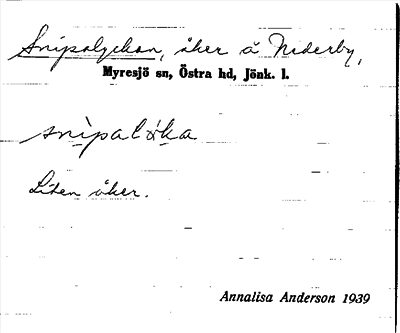 Snipalyckan, åker å Nederby,
Myresjö sn, Östra hd, Jönk. l.
snipalẙka
Liten åker.
Annalisa Anderson 1939